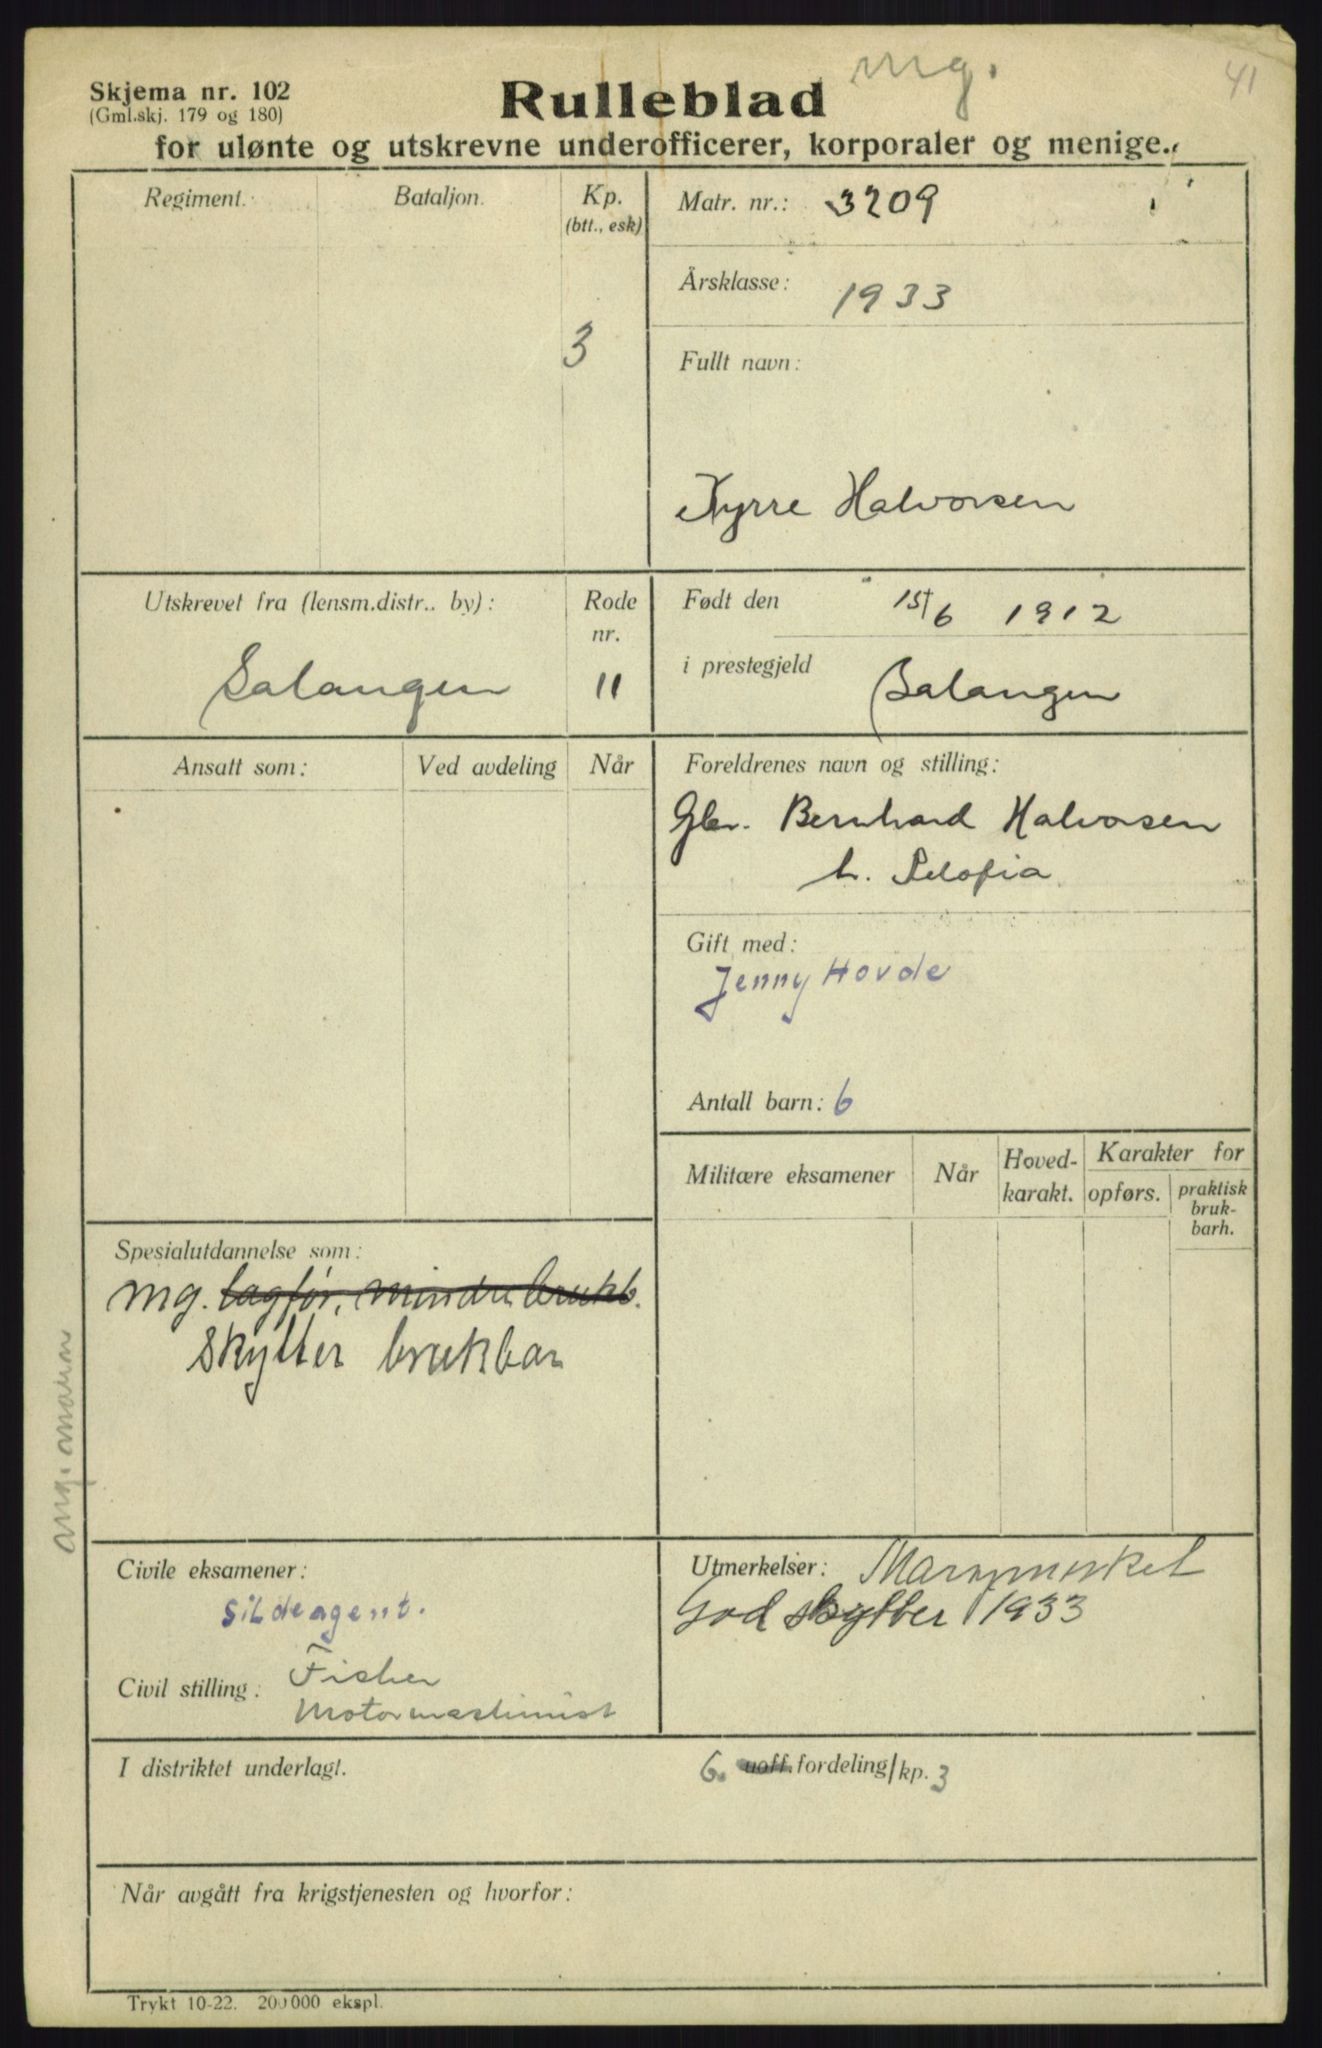 mg.
41
Skjema nr. 102
(Gml.skj. 179 og 180)
Rulleblad
for ulønte og utskrevne underofficerer, korporaler og menige.
Regiment.
Bataljon.
Kp.
(btt., esk)
3
Matr. nr.: 3209
Årsklasse: 1933
Fullt navn:
Kyrre Halvorsen
Utskrevet fra (lensm.distr.. by):
Salangen
Rode
nr.
11
Født den 15/6 1912
i prestegjeld Salangen
Ansatt som:
Ved avdeling
Når
Foreldrenes navn og stilling:
Gbr. Bernhard Halvorsen
h.
Gift med:
Jenny Hovde
Antall barn: 6
Militære eksamener
Når
Hoved-
karakt.
Karakter for
opførs.
praktisk
bruk-
barh.
Spesialutdannelse som:
mg. lagfør, mindre brukb.
skytter brukbar
Civile eksamener:
sildeagent.
Civil stilling: Fisker
Motormaskinist
Utmerkelser: Marsjmerket
God skytter 1933
I distriktet underlagt.
6. uoff.fordeling/kp. 3
Når avgått fra krigstjenesten og hvorfor:
Trykt 10-22. 200 000 ekspl.